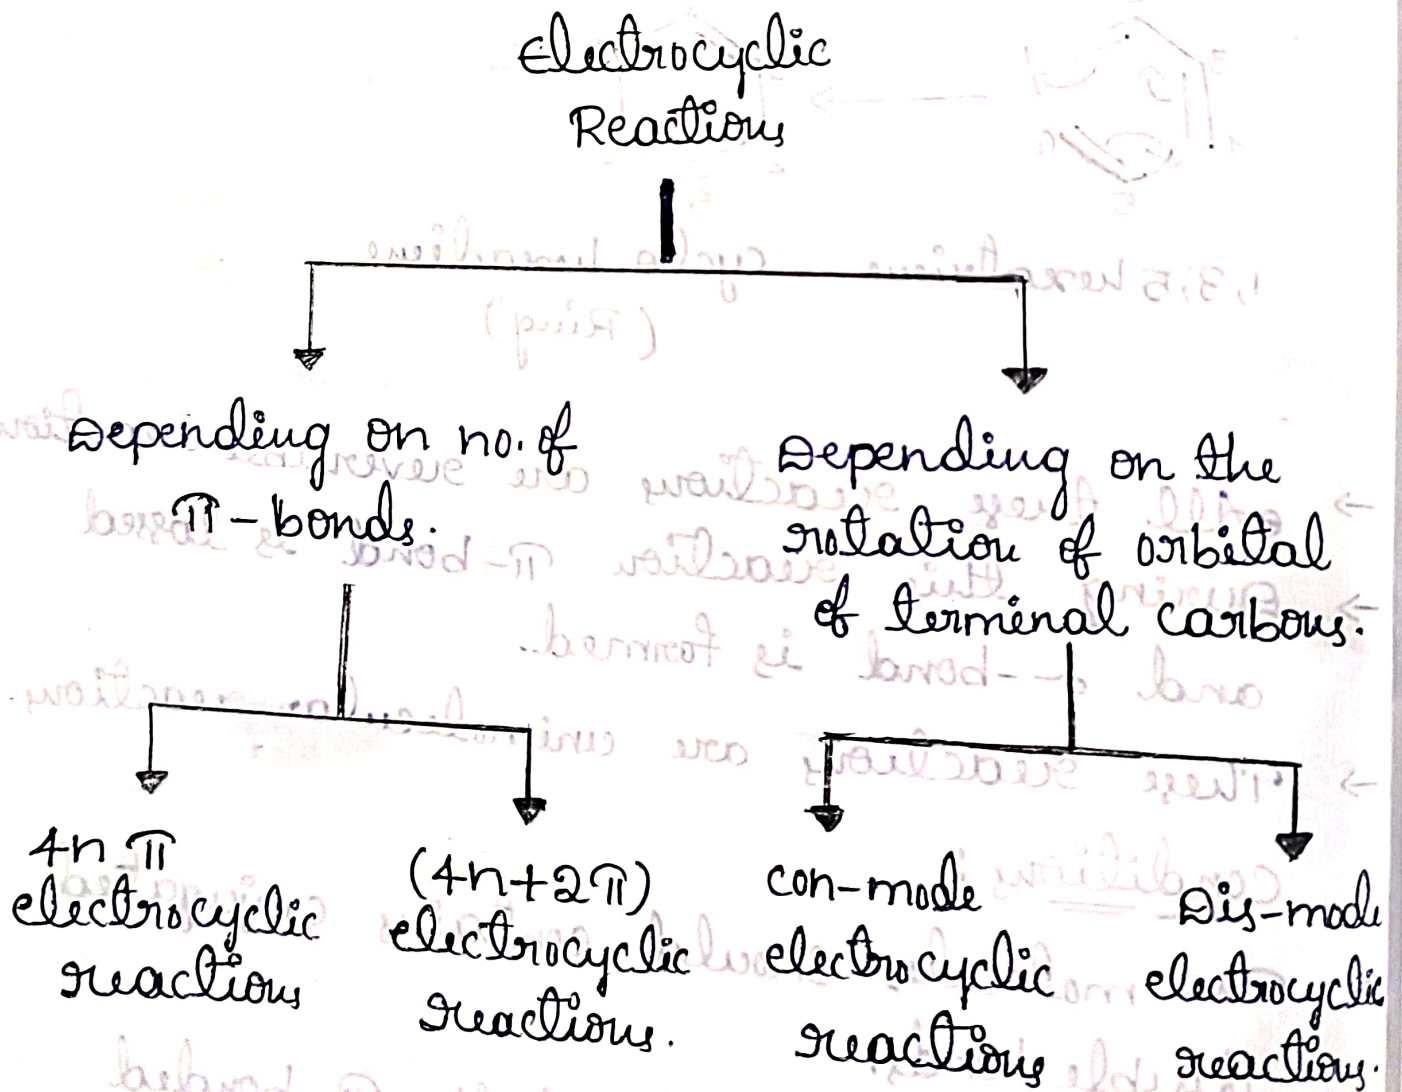 Electrocyclic
Reactions
Depending on no. of
π-bonds.
Depending on the
rotation of orbital
of terminal carbons.
4n π
electrocyclic
reactions
(4n+2π)
electrocyclic
reactions.
con-mode
electrocyclic
reactions
Dis-mode
electrocyclic
reactions.